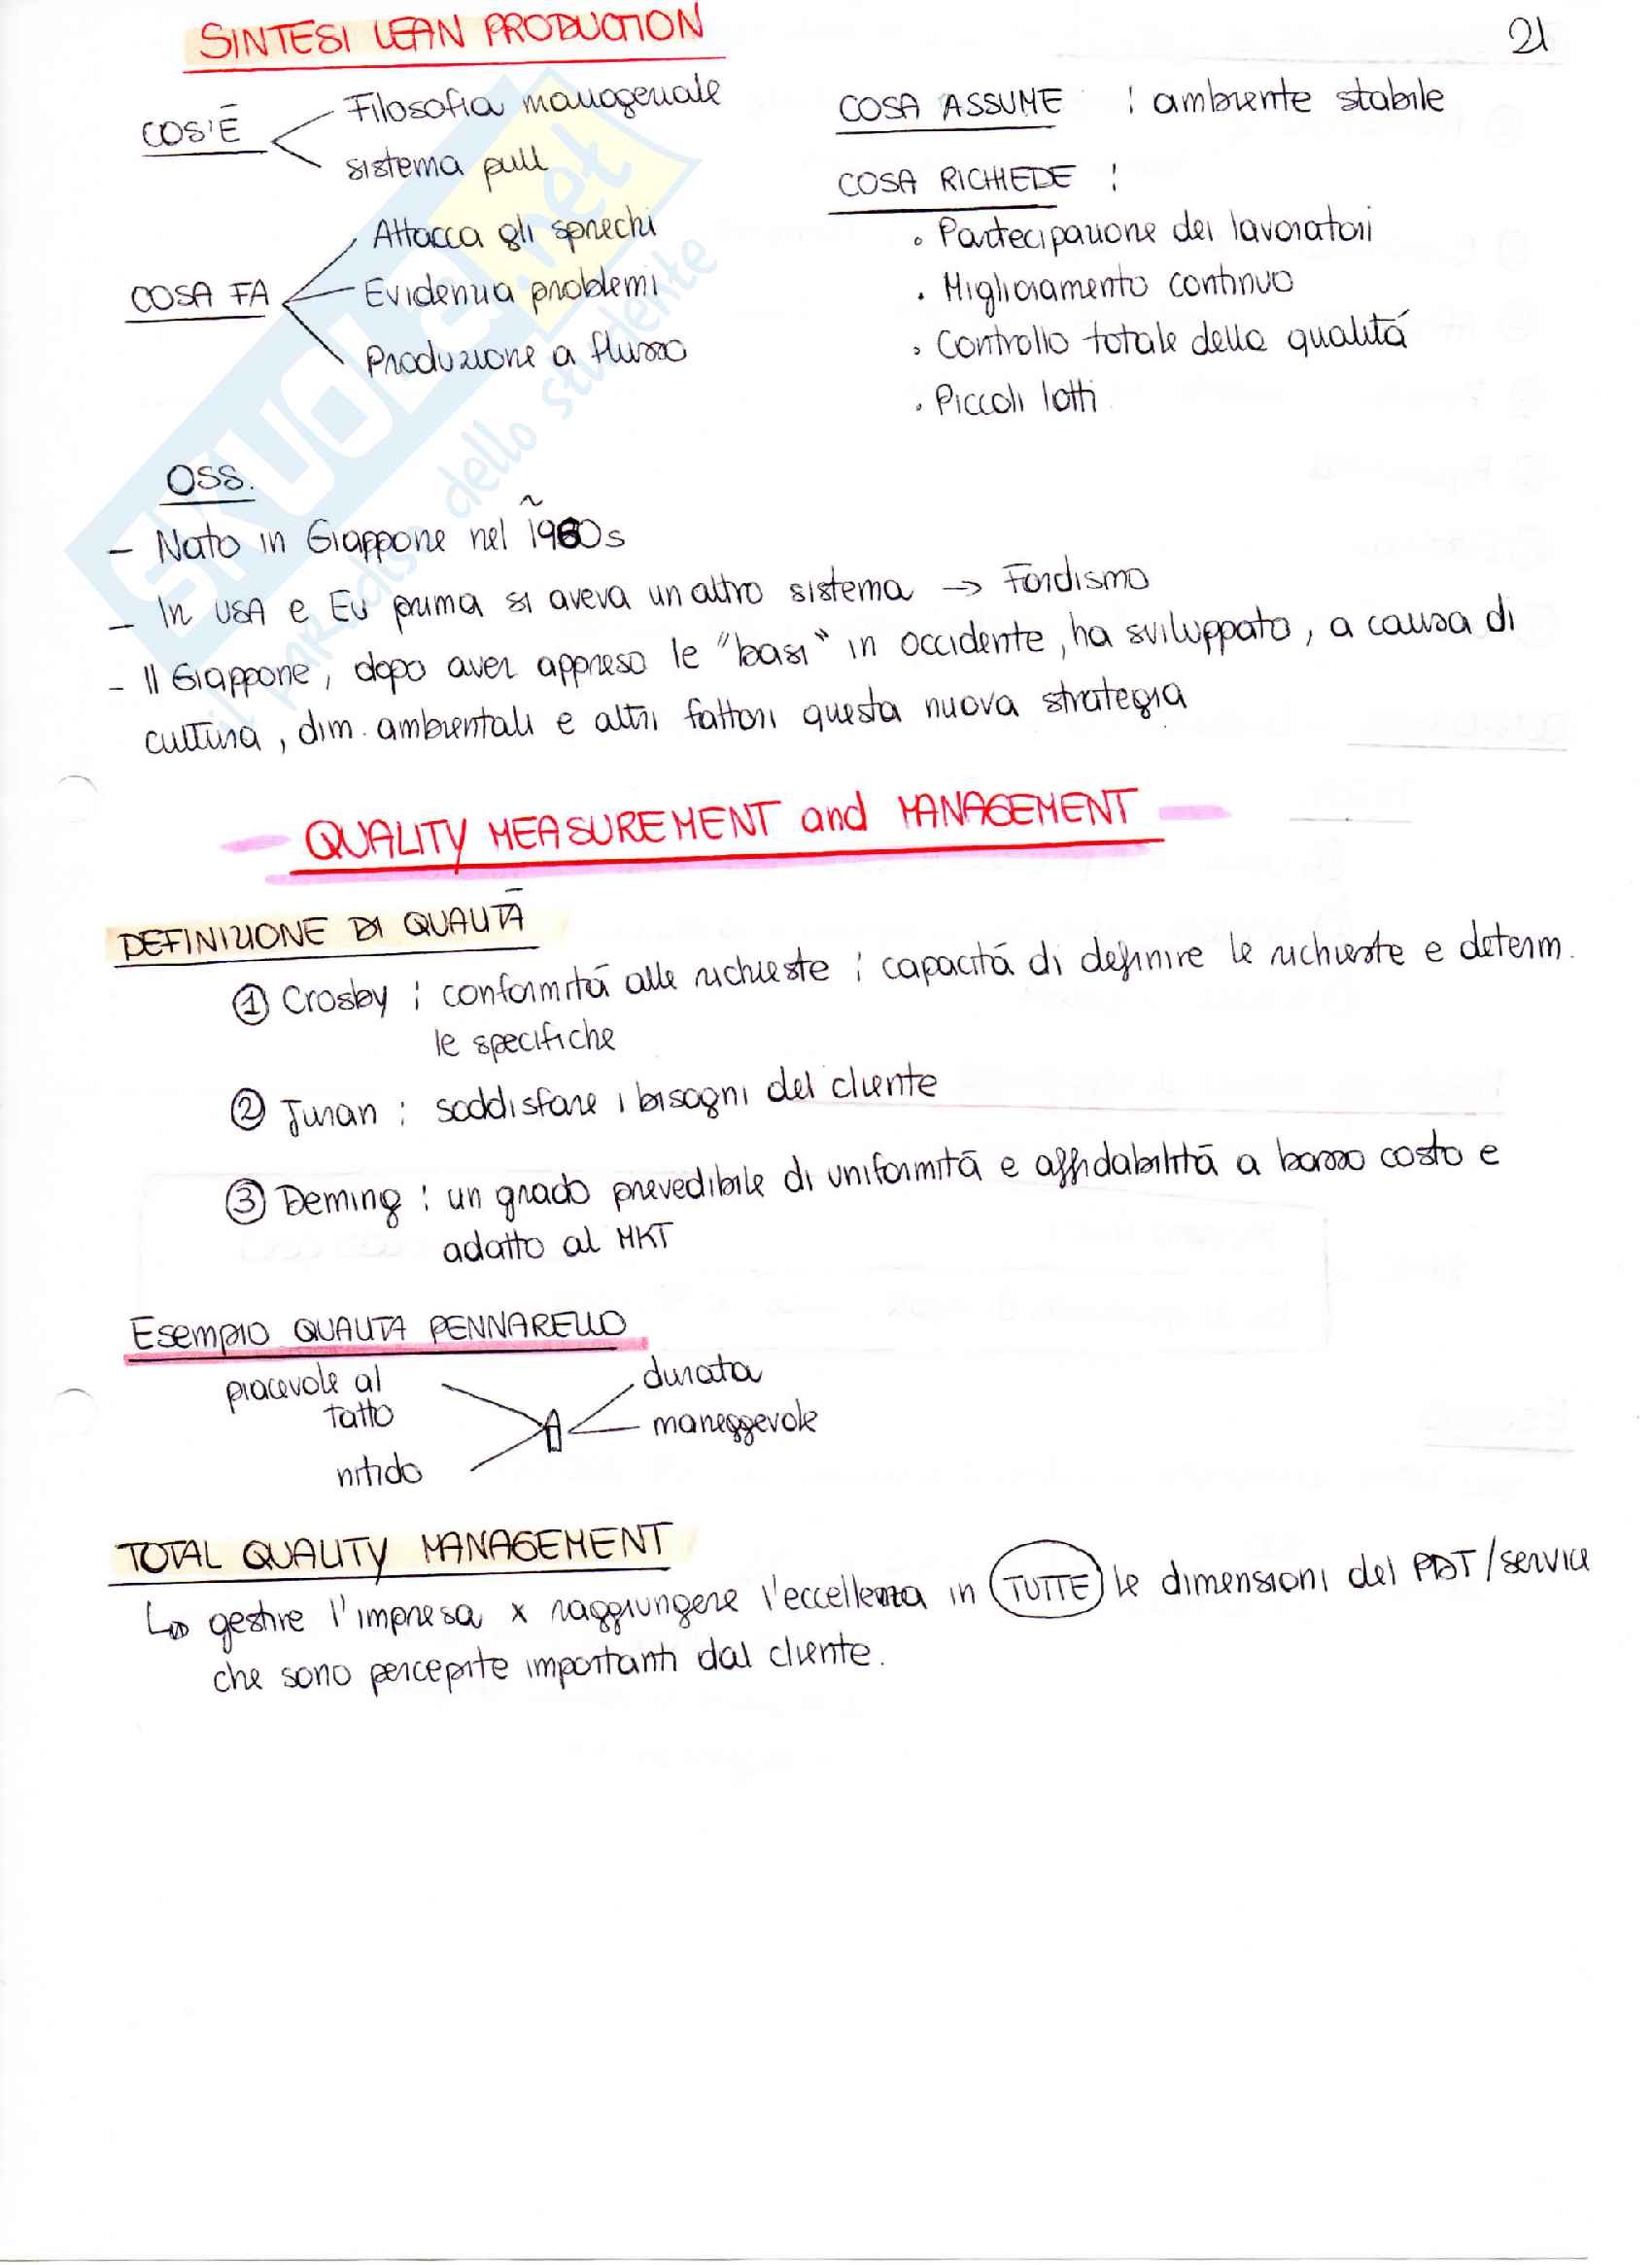 SINTESI LEAN PRODUCTION
21
COS'È
Filosofia manageriale
sistema pull
COSA FA
Attacca gli sprechi
Evidenzia problemi
Produzione a flusso
COSA ASSUME : ambiente stabile
COSA RICHIEDE :
• Partecipazione dei lavoratori
• Miglioramento continuo
• Controllo totale della qualità
• Piccoli lotti
OSS.
- Nato in Giappone nel ~1960s
- In USA e EU prima si aveva un altro sistema → Fordismo
- Il Giappone, dopo aver appreso le "basi" in occidente, ha sviluppato, a causa di
cultura, dim. ambientali e altri fattori questa nuova strategia
QUALITY MEASUREMENT and MANAGEMENT
DEFINIZIONE DI QUALITÀ
① Crosby : conformità alle richieste : capacità di definire le richieste e determ.
le specifiche
② Juran : soddisfare i bisogni del cliente
③ Deming : un grado prevedibile di uniformità e affidabilità a basso costo e
adatto al MKT
Esempio QUALITA PENNARELLO
piacevole al
tatto
nitido
durata
maneggevole
TOTAL QUALITY MANAGEMENT
↳ gestire l'impresa x raggiungere l'eccellenza in TUTTE le dimensioni del PDT/service
che sono percepite importanti dal cliente.
SKUOLa.net
il paradiso dello studente